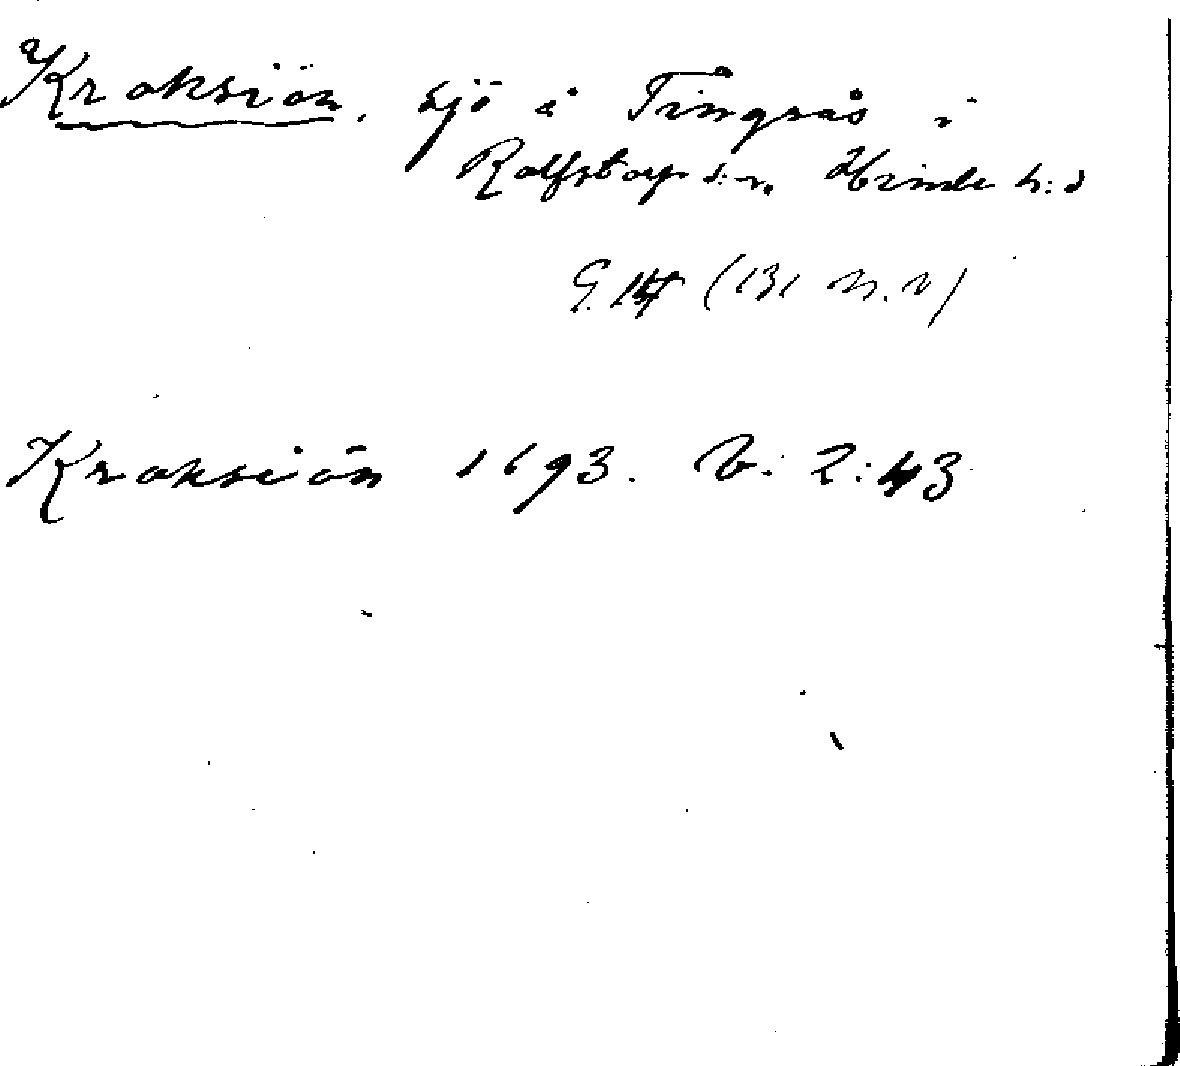 Kroksiön. sjö å Tingsås i
Rolfstorp s:n, Himle h:d
G. (131 N.V)
Kroksiön 1693. V: 2:43